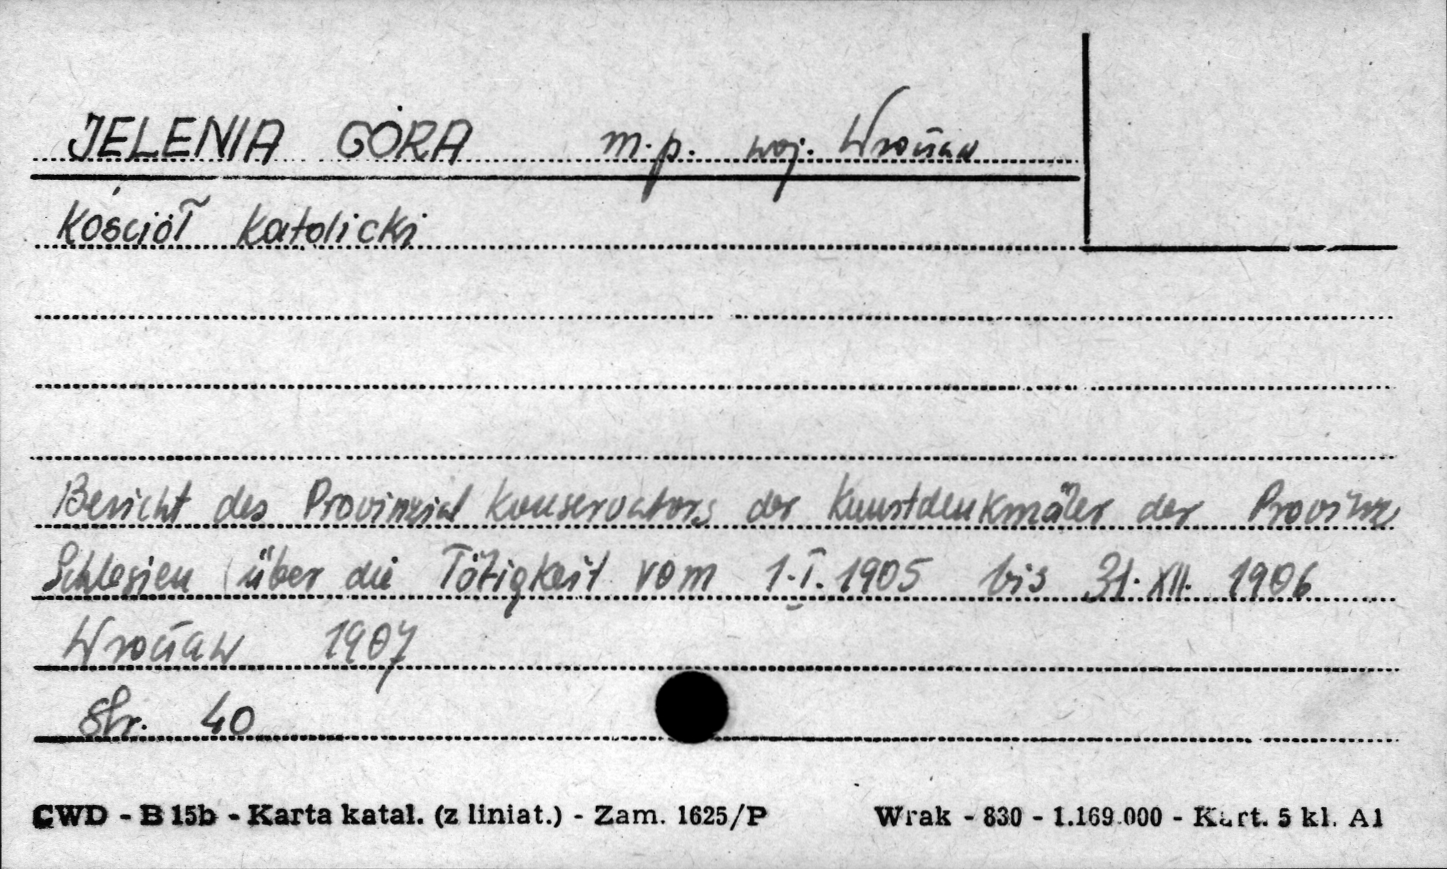 JELENIA GÓRA m.p. woj. Wrocław
Kościół Katolicki
Bericht des Provinzial Konservators der Kunstdenkmäler der Provinz
Schlesien über die Tätigkeit vom 1.I.1905 bis 31.XII.1906
Wrocław 1907
Str. 40
CWD - B 15b - Karta katal. (z liniat.) - Zam. 1625/P Wrak - 830 - 1.169.000 - Kart. 5 kl. A1